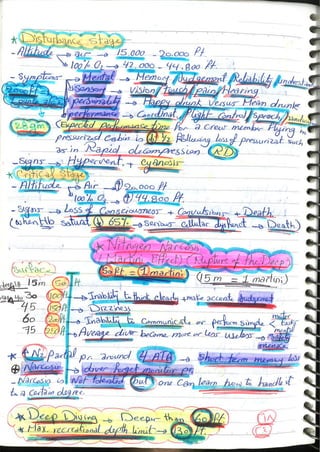 * Disturbance Stage
- Altitude → air → 15.000 - 20.000 ft
100% O2 → 42.000 - 44.800 ft.
- Symptoms → Mental → Memory / Judgement / Reliability / understand
Sensory → Vision / Touch / pain / Hearing
personality → Happy drunk Versus Mean drunk
performance → Coordinat. / Flight Control / Speech /
Expected performance time For a crew member Flying in
pressurized Cabin is ½ Following loss of pressurizat. such
as in Rapid decompression (RD)
- Signs → Hypervent. / cyanosis
* Critical Stage
- Altitude → Air → ↑ 20.000 ft
100% O2 → ↑ 44.800 ft
- Signs → Loss of Consciousness → Convulsions → Death
(when Hb saturat. ↓ 65% → Serious Cellular dysfunct → Death)
* Nitrogen Narcosis
(Martini Effect) (Rapture of the Deep)
50 ft = (1 martini) (15 m = 1 martini)
Surface
15m 50 ft
30 100 ft → Inability to think clearly / make accurate judgment
45 150 ft → Dizziness
60 200 ft → Inability to Communicate or perform simple motor
75 250 ft → Average diver become more or less useless →
* ↑ N2 partial pr. around 4 ATA → Short term memory loss
Narcosis → diver forget monitor pr.
- Narcosis is Not Tolerated but one Can learn how to handle it
to a Certain degree.
* Deep Diving → Deeper than 60 ft
* Max. recreational depth limit → 130 ft